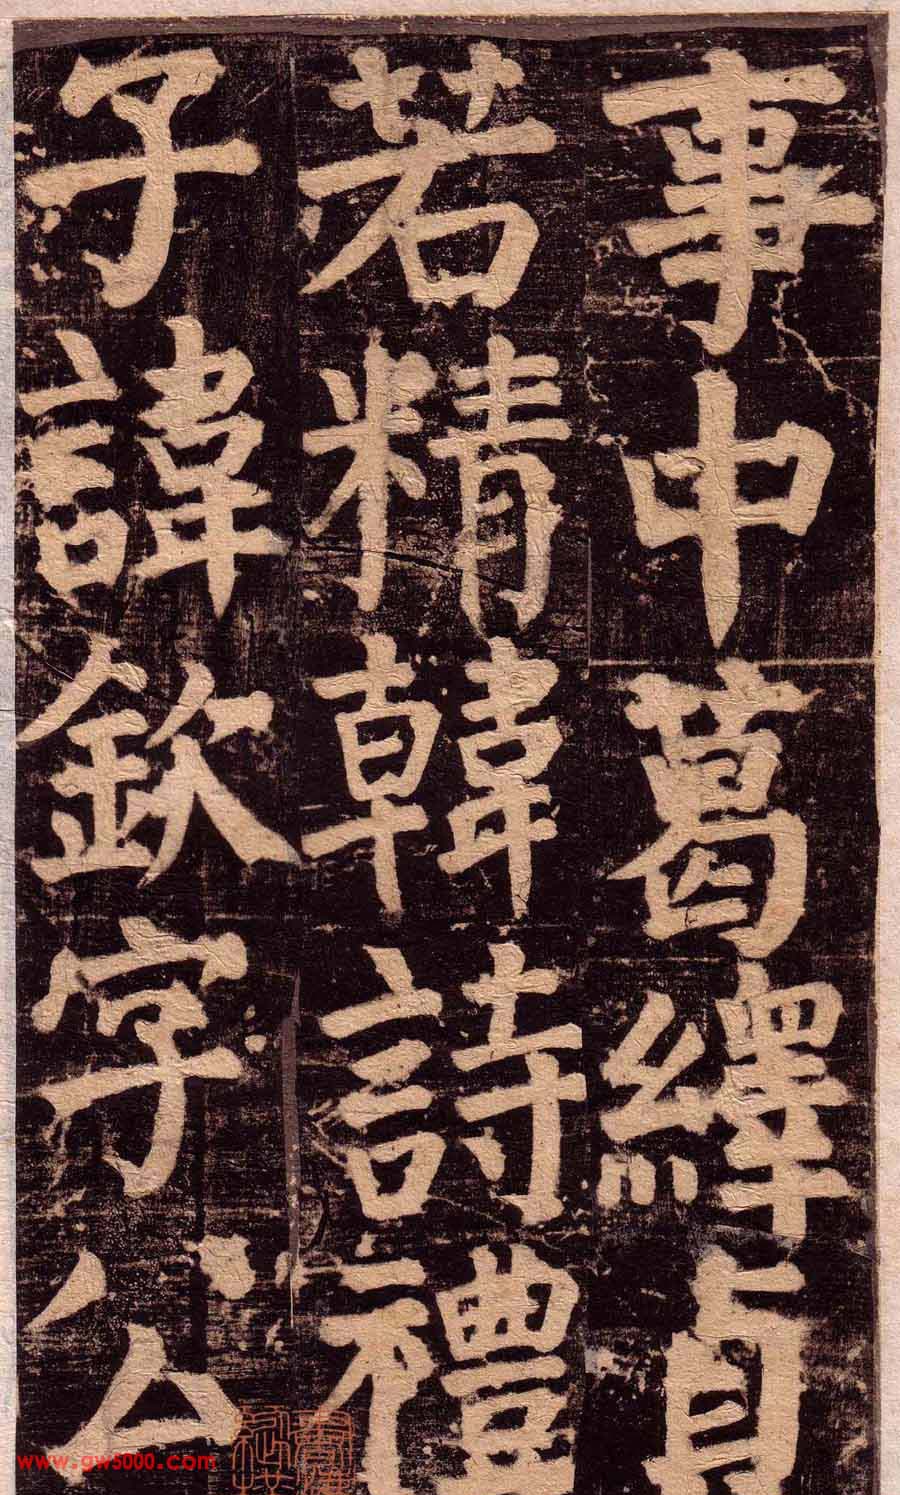 事中葛繹貞
若精韓詩禮
子諱欽字公
www.gw5000.com